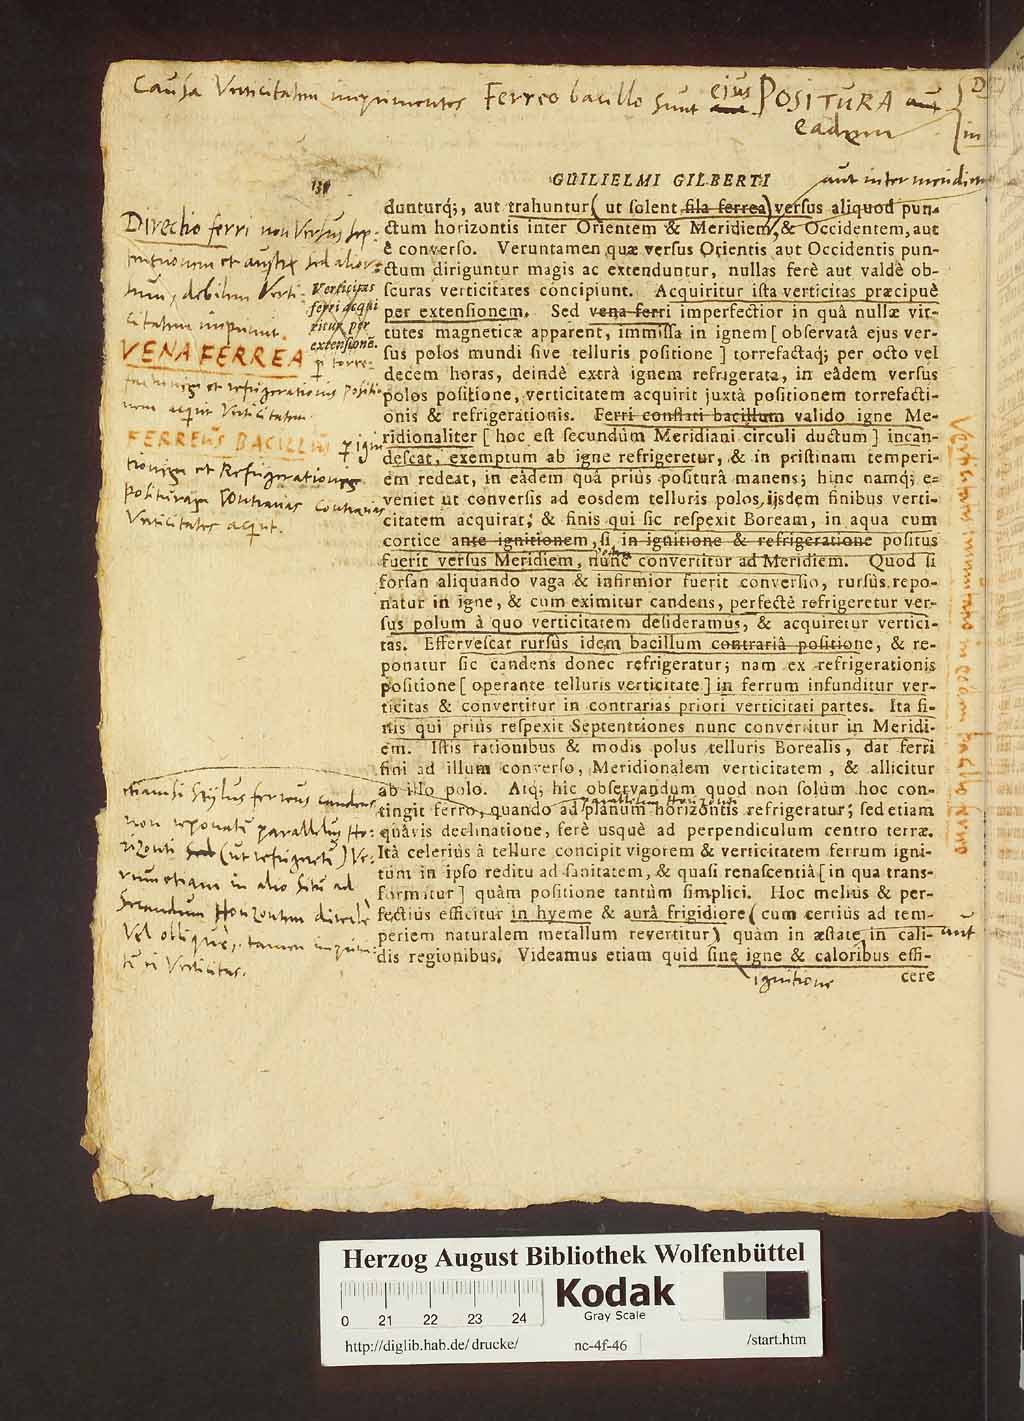 Causa Verticitatem imprimentes Ferreo bacillo sunt ejus POSITURA aut
eadem
in
GUILIELMI GILBERTI
aut inter meridiem
dunturq́;, aut trahuntur ( ut solent fila ferrea) versus aliquod pun-
ctum horizontis inter Orientem & Meridiem, & Occidentem, aut
è converso. Veruntamen quæ versus Orientis aut Occidentis pun-
ctum diriguntur magis ac extenduntur, nullas ferè aut valdè ob-
scuras verticitates concipiunt. Acquiritur ista verticitas præcipuè
per extensionem. Sed vena ferri imperfectior in quâ nullæ vir-
tutes magneticæ apparent, immissa in ignem [ observatâ ejus ver-
sus polos mundi sive telluris positione ] torrefactaq́; per octo vel
decem horas, deindè extrà ignem refrigerata, in eâdem versus
polos positione, verticitatem acquirit juxtà positionem torrefacti-
onis & refrigerationis. Ferri conflati bacillum valido igne Me-
ridionaliter [ hoc est secundùm Meridiani circuli ductum ] incan-
descat, exemptum ab igne refrigeretur, & in pristinam temperi-
em redeat, in eâdem quâ priùs positurâ manens; hinc namq́; e-
veniet ut conversis ad eosdem telluris polos, iisdem finibus verti-
citatem acquirat; & finis qui sic respexit Boream, in aqua cum
cortice ante ignitionem, si in ignitione & refrigeratione positus
fuerit versus Meridiem, nunc convertitur ad Meridiem. Quod si
forsan aliquando vaga & infirmior fuerit conversio, rursùs repo-
natur in igne, & cum eximitur candens, perfectè refrigeretur ver-
sus polum à quo verticitatem desideramus, & acquiretur vertici-
tas. Effervescat rursùs idem bacillum contrariâ positione, & re-
ponatur sic candens donec refrigeratur; nam ex refrigerationis
positione [ operante telluris verticitate ] in ferrum infunditur ver-
ticitas & convertitur in contrarias priori verticitati partes. Ita fi-
nis qui priùs respexit Septentriones nunc convertitur in Meridi-
em. Istis rationibus & modis polus telluris Borealis, dat ferri
fini ad illum converso, Meridionalem verticitatem, & allicitur
ab illo polo. Atq́; hic observandum quod non solùm hoc con-
tingit ferro, quando ad planum horizontis refrigeratur; sed etiam
quâvis declinatione, ferè usquè ad perpendiculum centro terræ.
Ità celeriùs à tellure concipit vigorem & verticitatem ferrum igni-
tum in ipso reditu ad sanitatem, & quasi renascentiâ [ in qua trans-
formatur ] quàm positione tantùm simplici. Hoc meliùs & per-
fectiùs efficitur in hyeme & aurâ frigidiore ( cum certiùs ad tem-
periem naturalem metallum revertitur ) quàm in æstate, in cali-
dis regionibus. Videamus etiam quid sine igne & caloribus effi-
cere
aut
ignitione
Directio ferri non Versus Sep-
tentrionem et austrum sed alior-
sum, debilem Verti-
citatem imprimit.
Verticitas
ferri acqui
ritur per
extensionem.
VENA FERREA
torre-
factionis et refrigerationis positi-
onem acquirit Verticitatem.
FERREUS BACILLUS
ignitionem et Refrigerationis
posituram contrarias contrarias
Verticitates acquirit.
etiamsi Stylus ferreus candens
non reponatur parallelus Ho-
rizonti (ut refrigeretur) Ve-
rum etiam in alio situ ad
Secundum Horizontem
Vel obliquè, tamen imprimi-
tur ei Verticitas.
Herzog August Bibliothek Wolfenbüttel
Kodak
Gray Scale
0 21 22 23 24
http://diglib.hab.de/drucke/ nc-4f-46 /start.htm